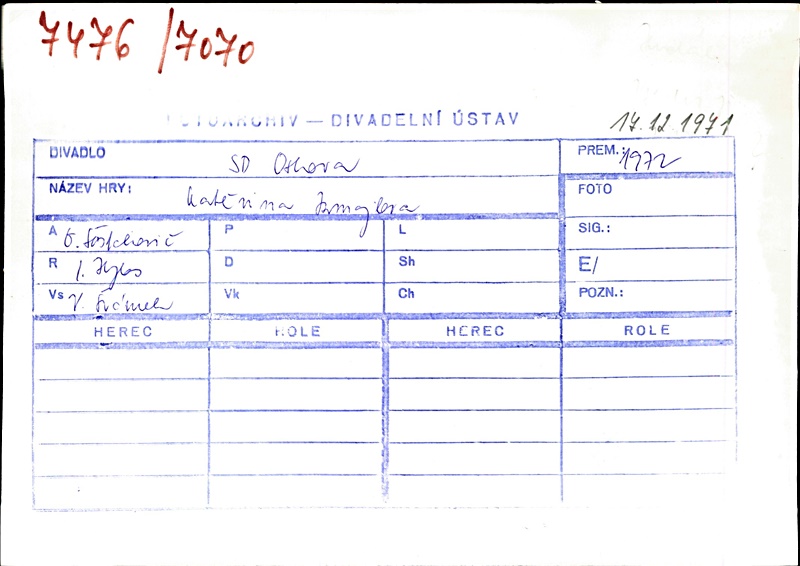 7476 / 7070
FOTOARCHIV — DIVADELNÍ ÚSTAV
17.12.1971
DIVADLO SD Ostrava
PREM.: 1972
NÁZEV HRY: Kateřina Izmajlova
FOTO
A D. Šostakovič P L SIG.:
R I. Hylas D Sh E/
Vs V. Šrámek Vk Ch POZN.:
HEREC ROLE HEREC ROLE